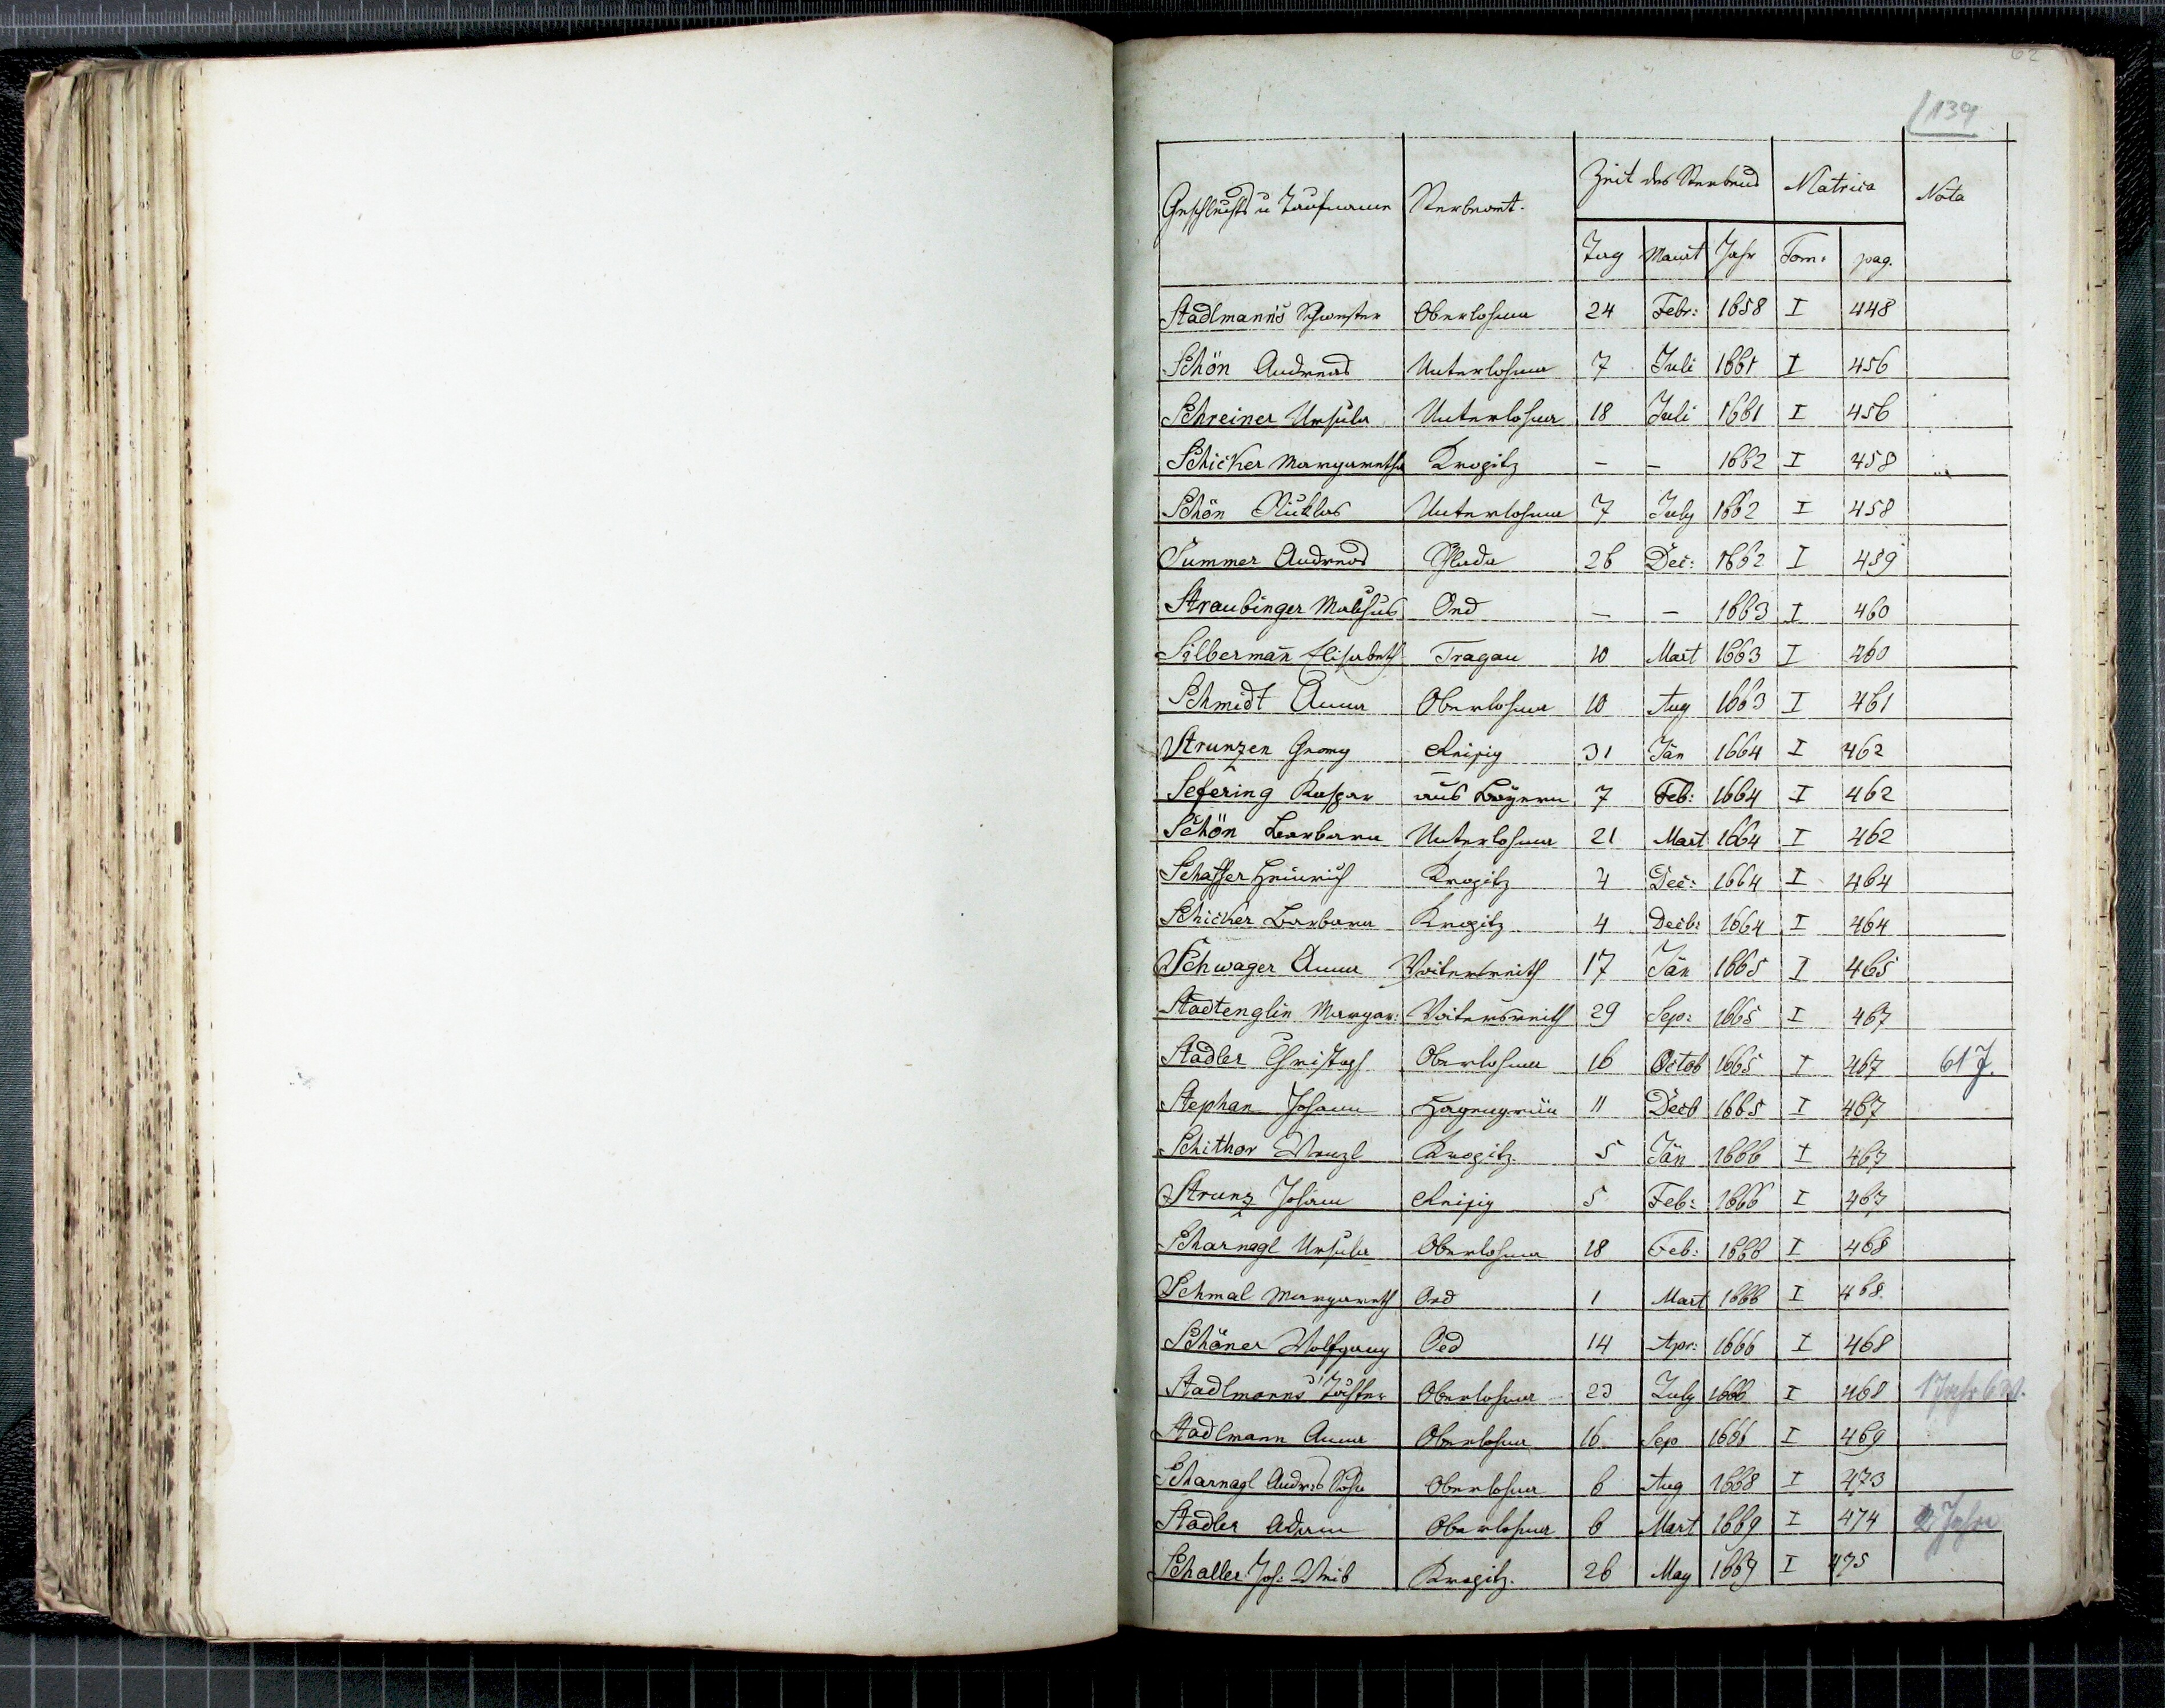 62
139
Geschlechts u Taufname Sterbeort. Zeit des Sterbens Matrica Nota
Tag Monat Jahr Tom: pag.
Stadlmann's Schwester Oberlohma 24 Febr: 1658 I 448
Schön Andreas Unterlohma 7 Juli 1661 I 456
Schreiner Ursula Unterlohma 18 Juli 1661 I 456
Schicker Margaretha Krogitz – – 1662 I 458
Schön Niklas Unterlohma 7 July 1662 I 458
Summer Andreas Schlada 26 Dec: 1662 I 459
Straubinger Oed – – 1663 I 460
Silberman̄ Elisabeth Tragau 10 Mart 1663 I 460
Schmidt Anna Oberlohma 10 Aug 1663 I 461
Strunzen Georg Reißig 31 Jän 1664 I 462
Sefering Kaspar aus Bayern 7 Feb: 1664 I 462
Schön Barbara Unterlohma 21 Mart 1664 I 462
Schaffer Heinrich Krogitz 4 Dec: 1664 I 464
Schicker Barbara Krogitz 4 Decb: 1664 I 464
Schwager Anna Voitersreith 17 Jän 1665 I 465
Stadtenglin Margar: Voitersreith 29 Sep: 1665 I 467
Stadler Christoph Oberlohma 16 Octob 1665 I 467 61 J.
Stephan Johann Hagengrün 11 Decb 1665 I 467
Schithor Wenzl Krogitz 5 Jän 1666 I 467
Strunz Johann Reißig 5 Feb: 1666 I 467
Scharnagl Ursula Oberlohma 18 Feb: 1666 I 468
Schmal Margareth Oed 1 Mart 1666 I 468
Schöner Wolfgang Oed 14 Apr: 1666 I 468
Stadlmanns Tochter Oberlohma 23 July 1666 I 468 1 Jahr 6 M.
Stadlmann Anna Oberlohma 16 Sep 1666 I 469
Scharnagl Andreas Sohn Oberlohma 6 Aug 1668 I 473
Stadler Adam Oberlohma 6 Mart 1669 I 474 Jahre
Schaller Joh: Weib Krogitz. 26 May 1669 I 475